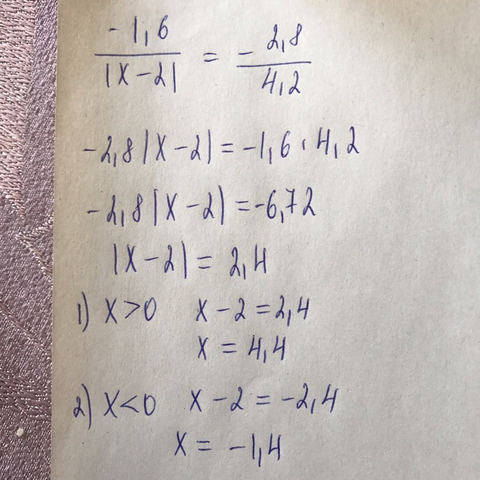 -1,6 / |x-2| = - 2,8 / 4,2
-2,8|x-2| = -1,6 · 4,2
-2,8|x-2| = -6,72
|x-2| = 2,4
1) x>0 x-2=2,4
x = 4,4
2) x<0 x-2 = -2,4
x = -1,4